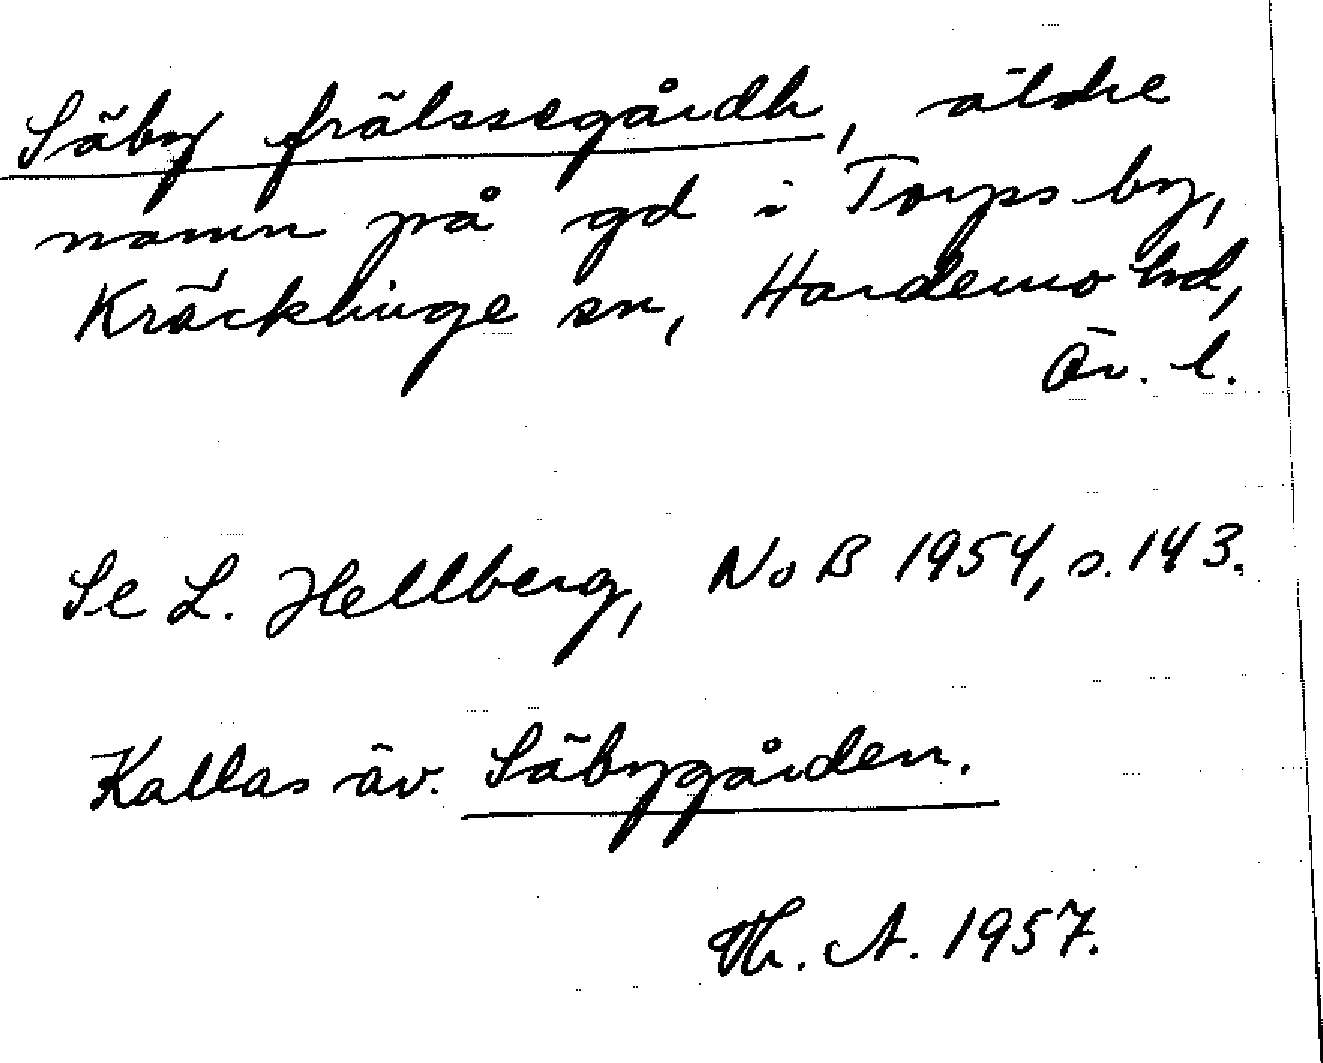 Säby frälssegårdh, äldre
namn på gd i Torps by,
Kräcklinge sn, Hardemo hd,
Ör. l.
Se L. Hellberg, NoB 1954, s. 143.
Kallas äv. Säbygården.
Th. A. 1957.